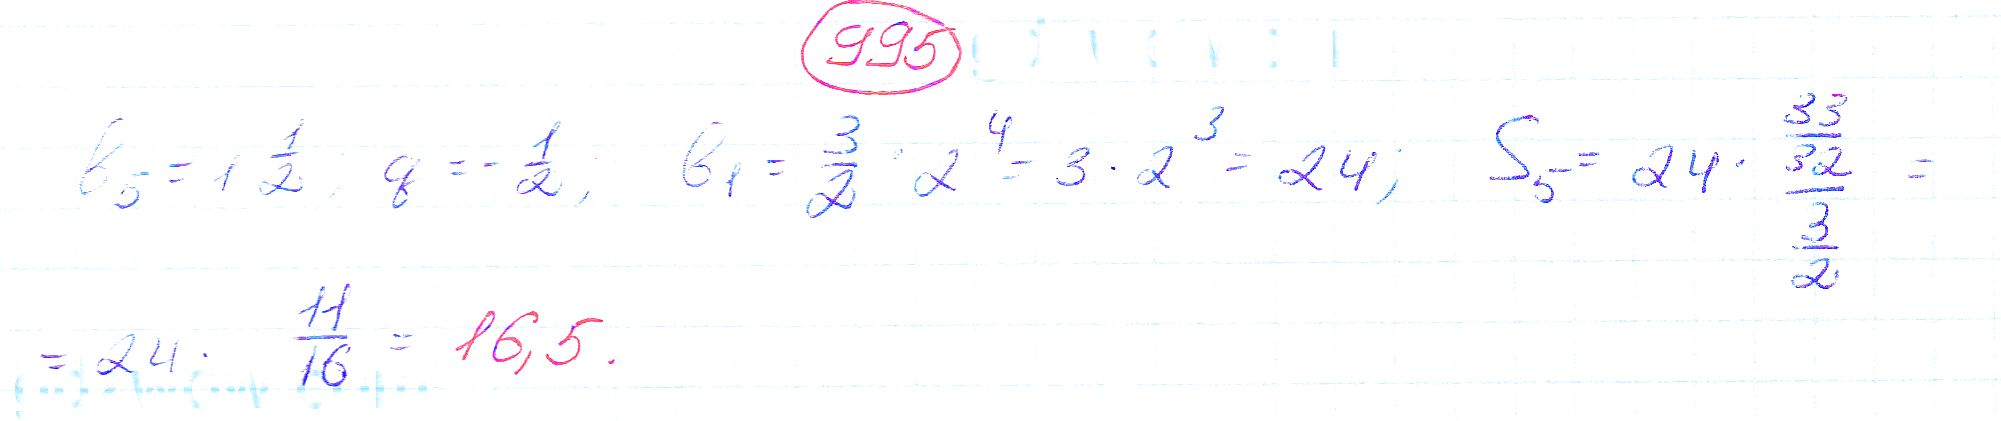 995
b₅ = 1 1/2; q = - 1/2; b₁ = 3/2 · 2⁴ = 3 · 2³ = 24; S₅ = 24 · (33/32)/(3/2) =
= 24 · 11/16 = 16,5.